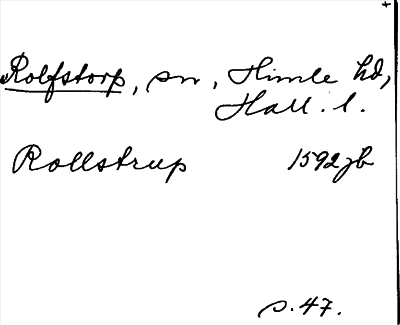 Rolfstorp, sn, Himle hd,
Hall. l.
Rollstrup 1592 jb
s. 47.